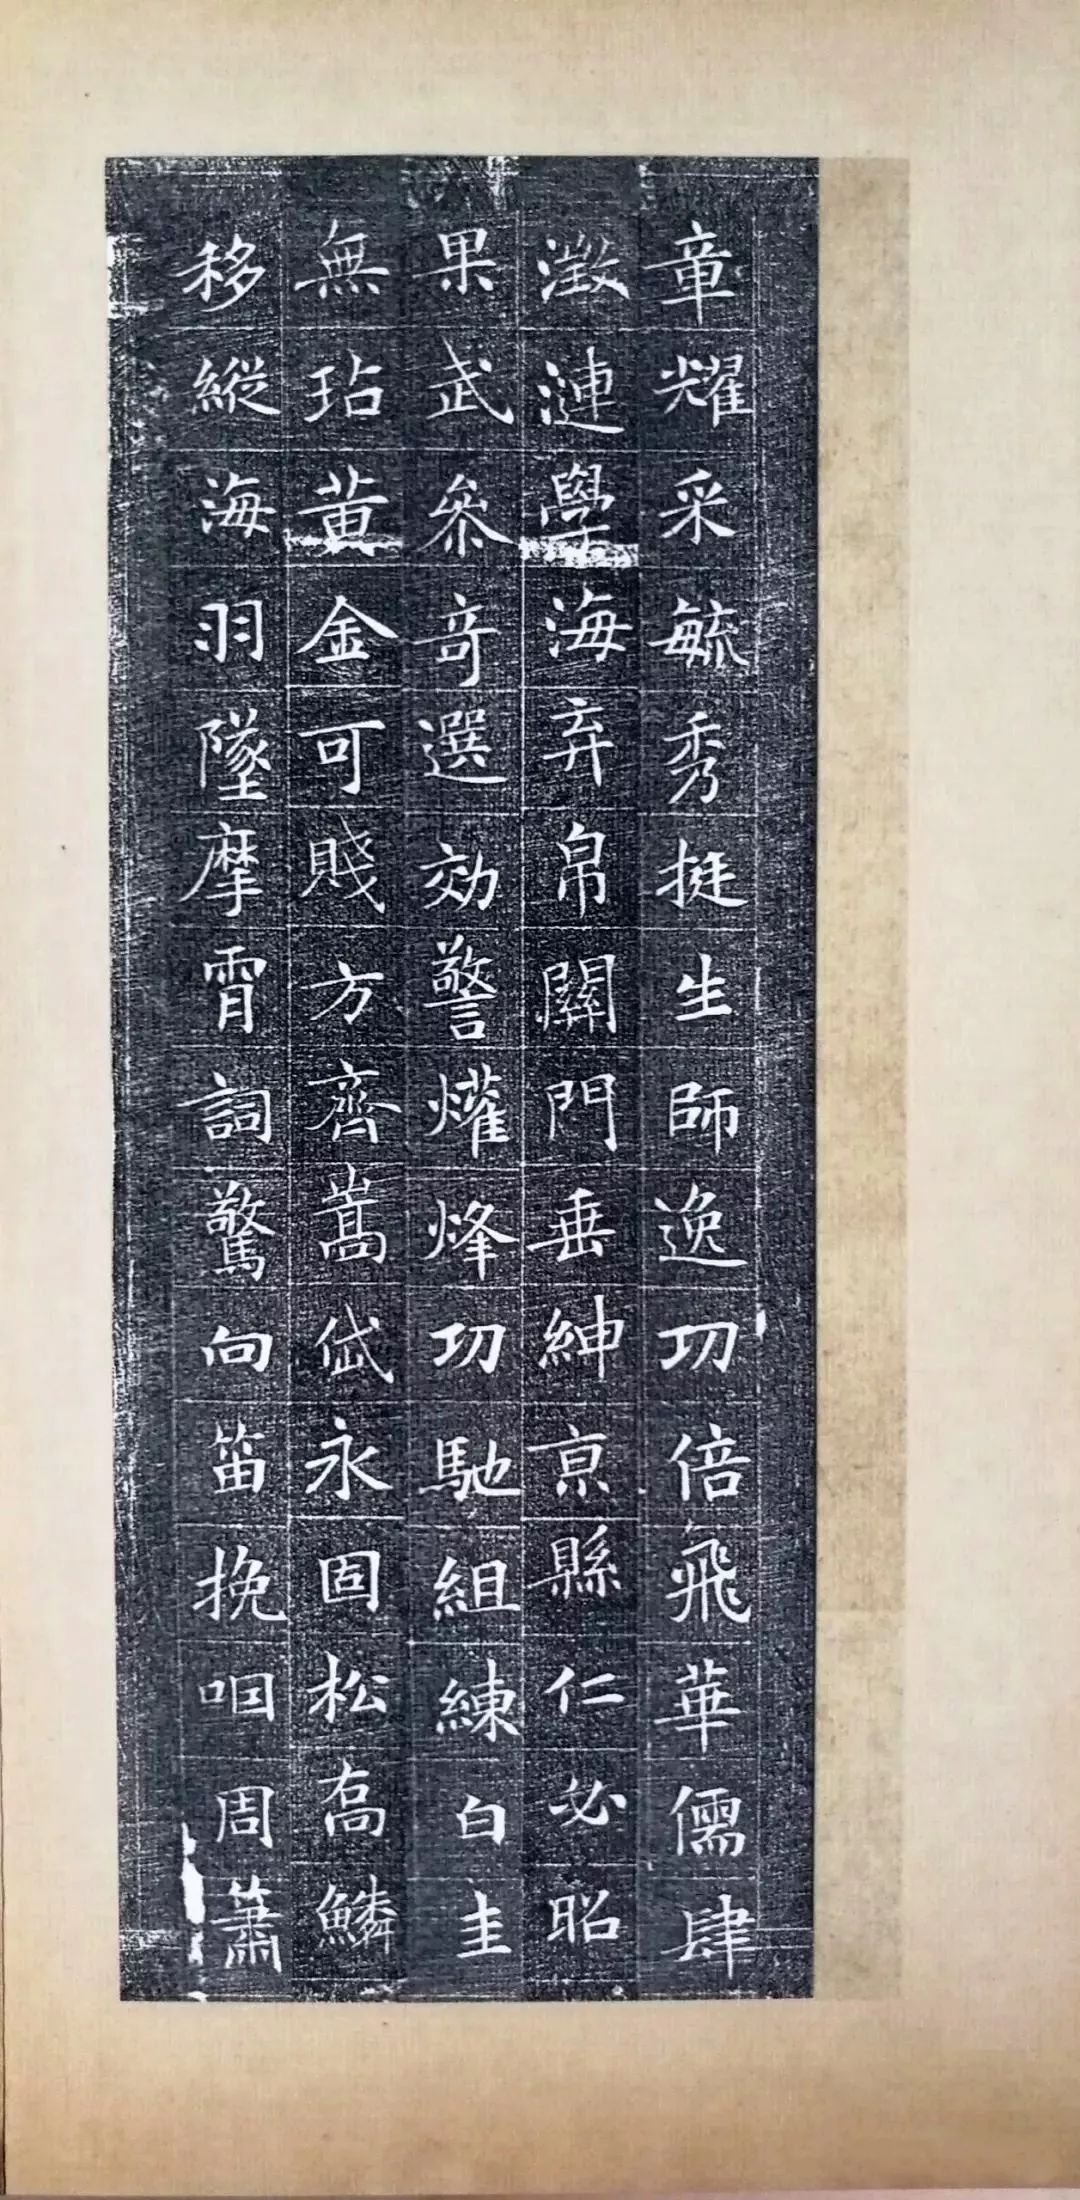 章耀采毓秀挺生師逸功倍飛華儒肆
澂漣學海弃帛關門垂紳京縣仁必昭
果武叅奇選効警爟烽功馳組練白圭
無玷黄金可賤方齊嵩岱永固松喬鱗
移縱海羽墜摩霄詞驚向笛挽咽周簫